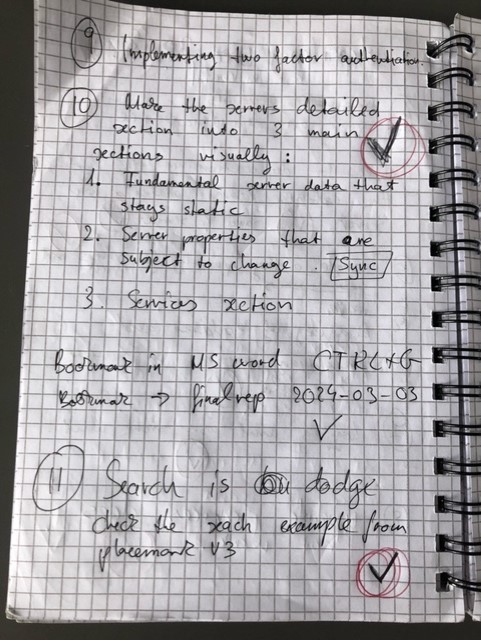 9 Implementing two factor authentication.
10 Make the servers detailed
section into 3 main
sections visually :
1. Fundamental server data that
stays static
2. Server properties that are
subject to change. Sync
3. Services section
Bookmark in MS word CTRL+G
Bookmar → finalrep 2024-03-03
11 Search is dodge
check the seach example from
placemark v3